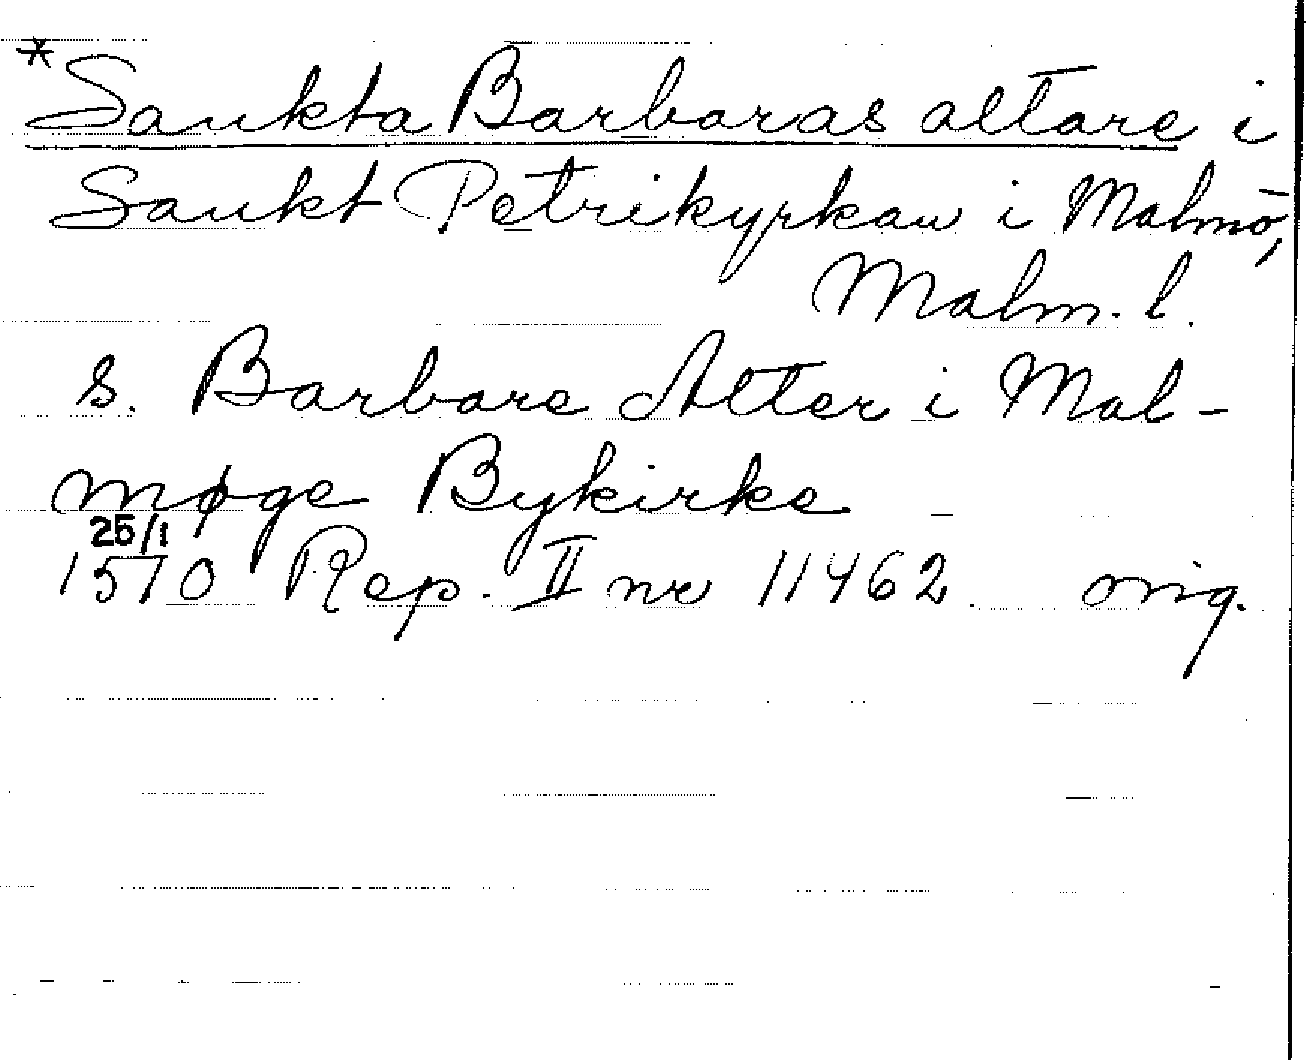 *Sankta Barbaras altare i
Sankt Petrikyrkan i Malmö,
Malm. l.
S. Barbare Alter i Mal-
møge Bykirke
25/1
1510 Rep. II nr 11462. orig.